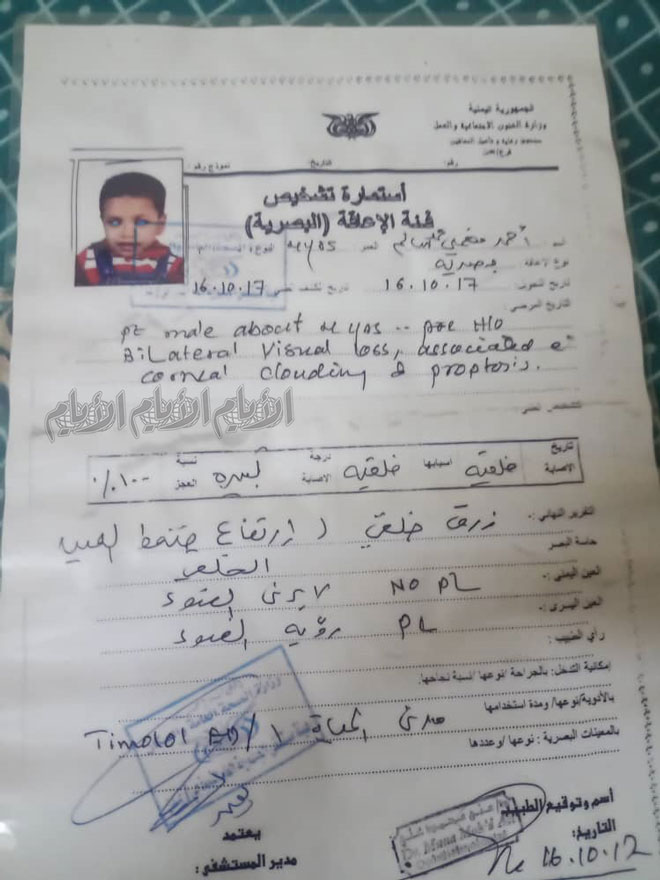 الجمهورية اليمنية
وزارة الشئون الاجتماعية والعمل
صندوق رعاية وتأهيل المعاقين
فرع/عدن
رقم: التاريخ: نموذج رقم:
أستمارة تشخيص
فئة الإعاقة (البصرية)
أحمد سالم العمر 4yrs النوع
نوع الإعاقة: بصرية
تاريخ التحويل: 16.10.17 تاريخ الكشف الطبي 16.10.17
التاريخ المرضي:
pt male about 4 yrs .. H/O
Bilateral Visual loss, associated c
corneal clouding & proptosis.
الأيام الأيام الأيام
التشخيص الطبي:
تاريخ الاصابة خلقية اسبابها خلقيه درجة الاصابة كبيره نسبة العجز ١٠٠٪
التقرير النهائي: زرق خلقي ( ارتفاع ضغط العين
حاسة البصر الخلقي
العين اليمنى: NO PL لا يرى الضوء
العين اليسرى: PL رؤية الضوء
رأي الطبيب:
إمكانية التدخل: بالجراحة/نوعها/نسبة نجاحها:
بالأدوية/نوعها/ ومدة استخدامها مدى الحياة Timolol ED
بالمعينات البصرية: نوعها /وعددها
أسم وتوقيع الطبيب:
التاريخ: 16.10.17
يعتمد
مدير المستشفى: